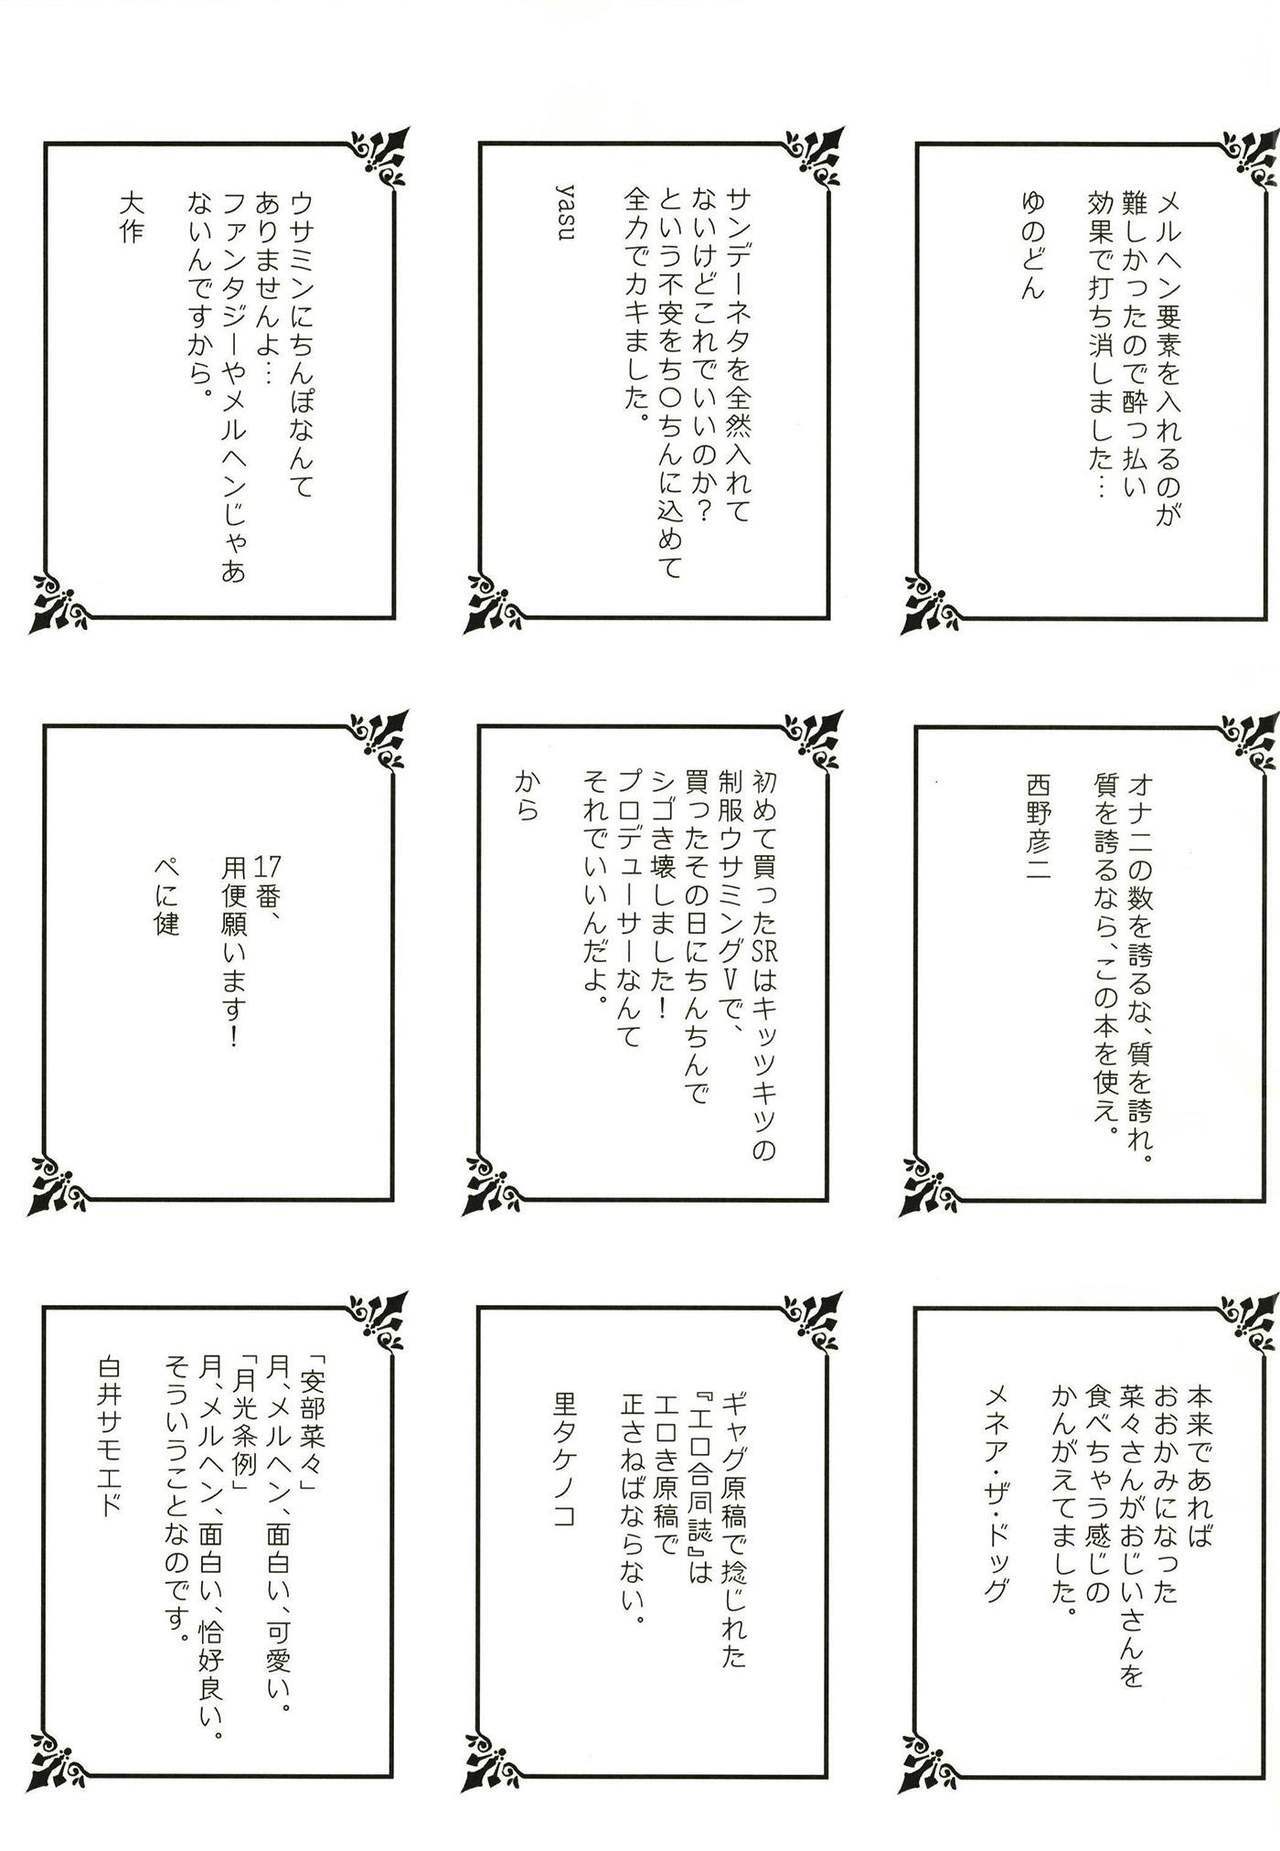 メルヘン要素を入れるのが
難しかったので酔っ払い
効果で打ち消しました…
ゆのどん
サンデーネタを全然入れて
ないけどこれでいいのか？
という不安をち〇ちんに込めて
全力でカキました。
yasu
ウサミンにちんぽなんて
ありませんよ…
ファンタジーやメルヘンじゃあ
ないんですから。
大作
オナニの数を誇るな、質を誇れ。
質を誇るなら、この本を使え。
西野彦二
初めて買ったSRはキッツキツの
制服ウサミングVで、
買ったその日にちんちんで
シゴき壊しました！
プロデューサーなんて
それでいいんだよ。
から
17番、
用便願います！
ぺに健
本来であれば
おおかみになった
菜々さんがおじいさんを
食べちゃう感じの
かんがえてました。
メネア・ザ・ドッグ
ギャグ原稿で捻じれた
『エロ合同誌』は
エロき原稿で
正さねばならない。
里タケノコ
「安部菜々」
月、メルヘン、面白い、可愛い。
「月光条例」
月、メルヘン、面白い、恰好良い。
そういうことなのです。
白井サモエド